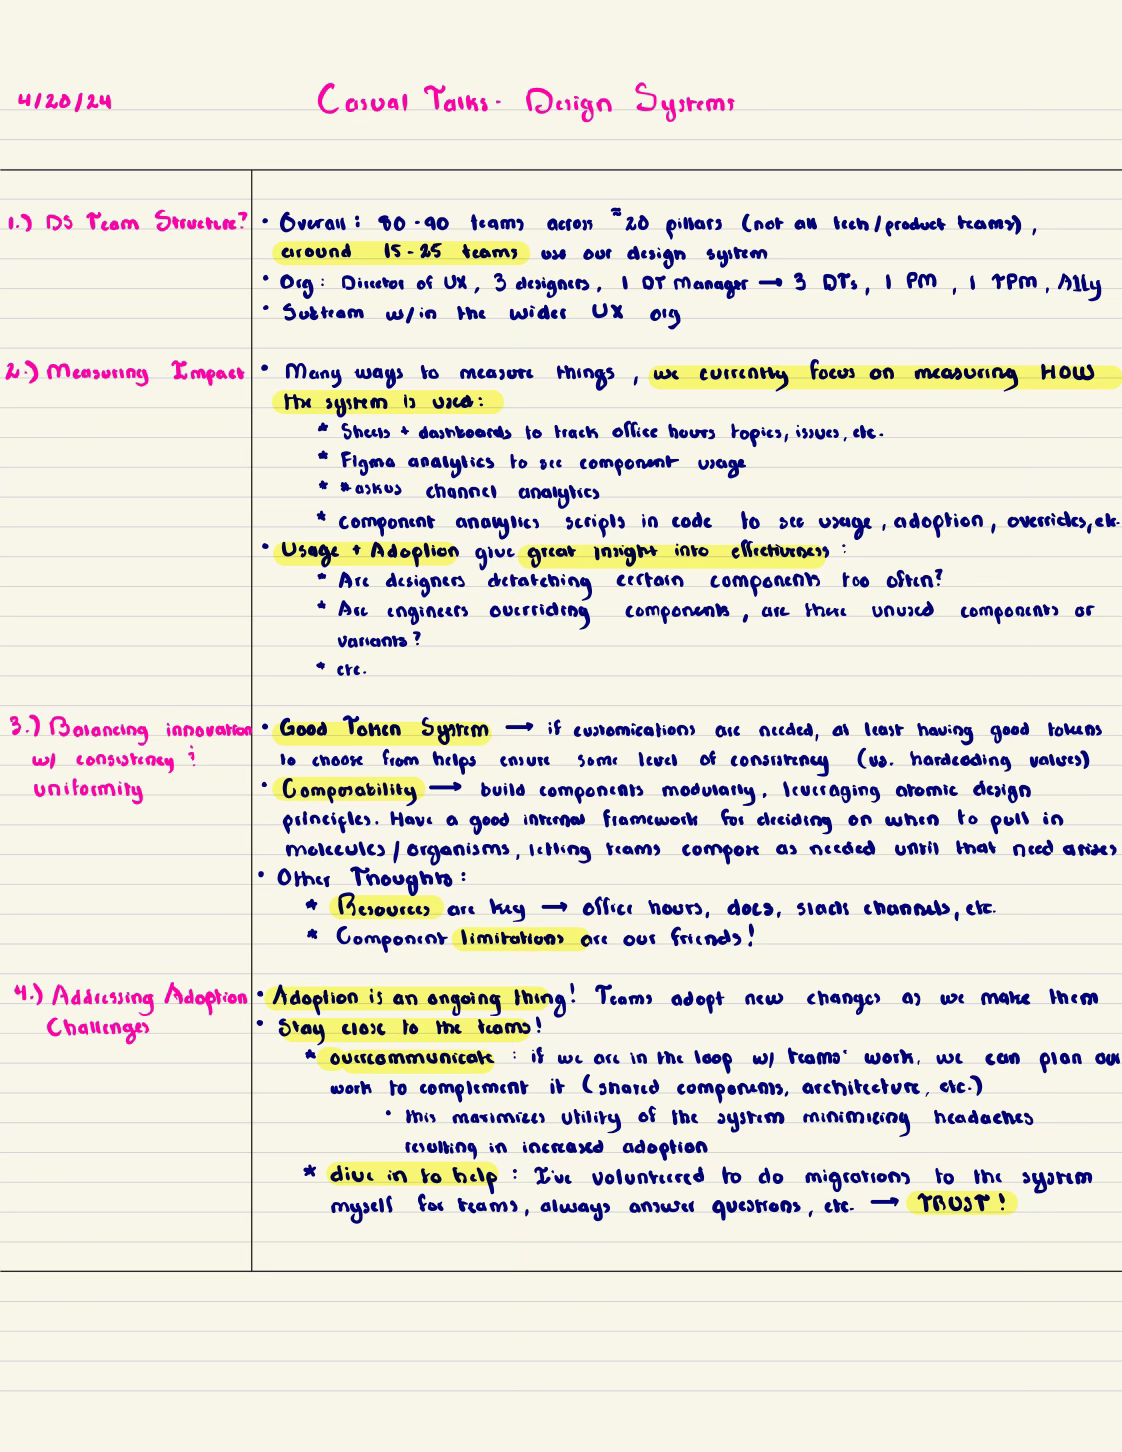 4/20/24
Casual Talks - Design Systems
1.) DS Team Structure?
• Overall: 80-90 teams across ≈20 pillars (not all tech/product teams),
around 15-25 teams use our design system
• Org: Director of UX, 3 designers, 1 DT Manager → 3 DTs, 1 PM, 1 TPM, A11y
• Subteam w/in the wider UX org
2.) Measuring Impact
• Many ways to measure things, we currently focus on measuring HOW
the system is used:
* Sheets + dashboards to track office hours topics, issues, etc.
* Figma analytics to see component usage
* #askus channel analytics
* component analytics scripts in code to see usage, adoption, overrides, etc.
• Usage + Adoption give great insight into effectiveness:
* Are designers detatching certain components too often?
* Are engineers overriding components, are there unused components or
variants?
* etc.
3.) Balancing innovation
w/ consistency &
uniformity
• Good Token System → if customications are needed, at least having good tokens
to choose from helps ensure some level of consistency (vs. hardcoding values)
• Composability → build components modularly, leveraging atomic design
principles. Have a good internal framework for deciding on when to pull in
molecules/organisms, letting teams compose as needed until that need arises
• Other Thoughts:
* Resources are key → office hours, docs, slack channels, etc.
* Component limitations are our friends!
4.) Addressing Adoption
Challenges
• Adoption is an ongoing thing! Teams adopt new changes as we make them
• Stay close to the teams!
* overcommunicate: if we are in the loop w/ teams' work, we can plan our
work to complement it (shared components, architecture, etc.)
• this maximizes utility of the system minimizing headaches
resulting in increased adoption
* dive in to help: I've volunteered to do migrations to the system
myself for teams, always answer questions, etc. → TRUST!